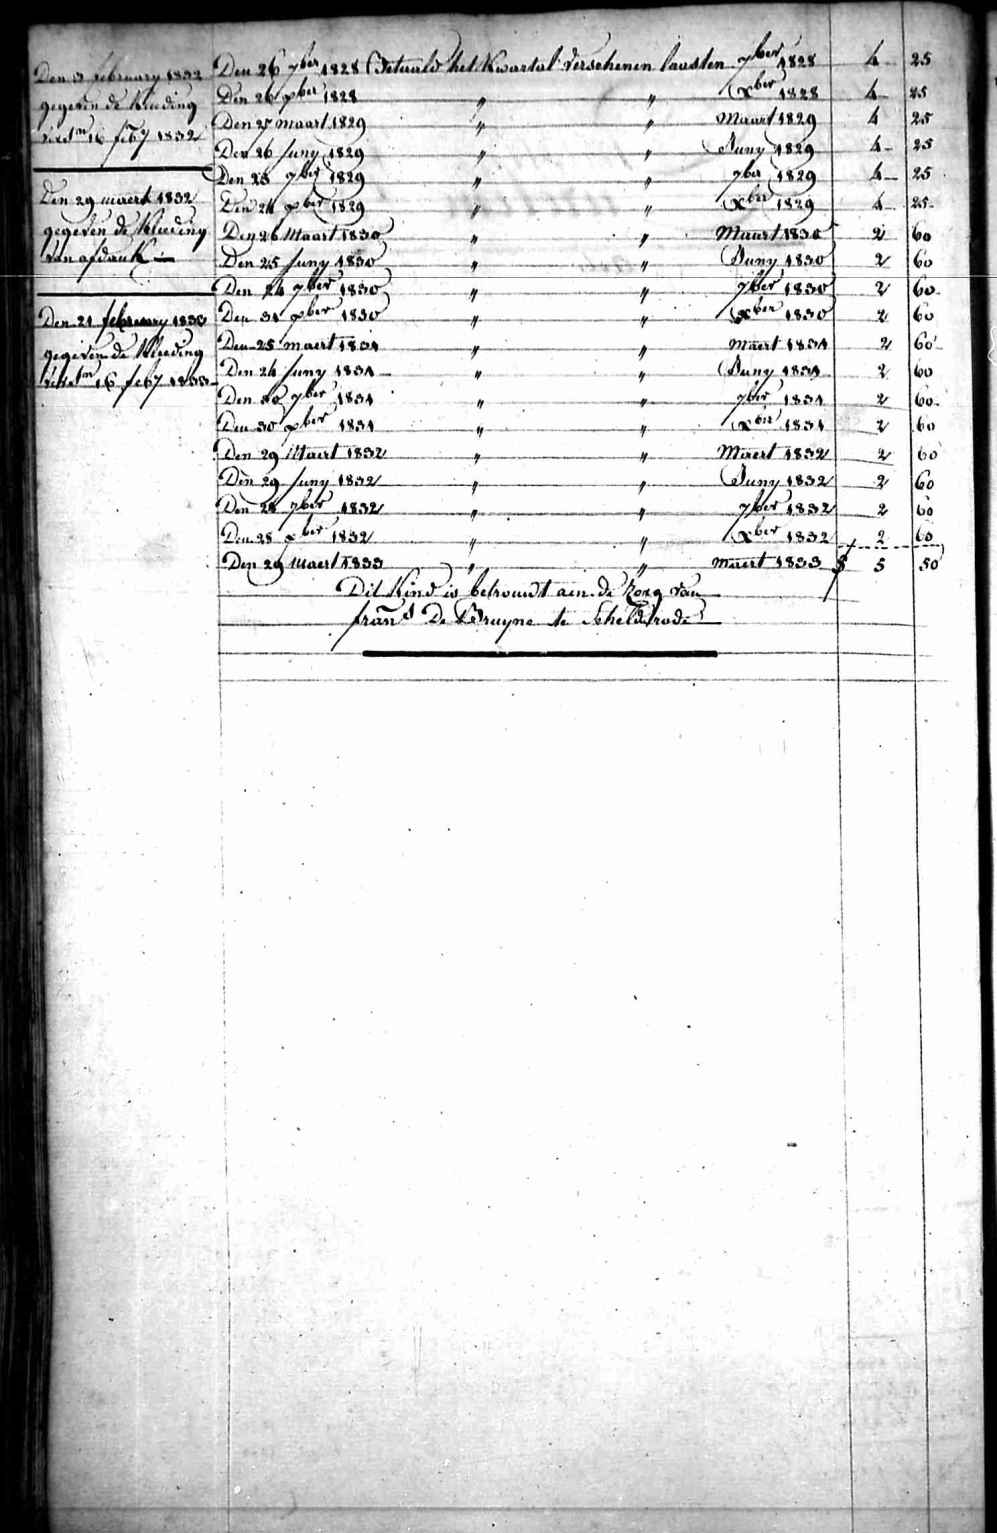 Den 3 february 1832
gegeven de Kleeding
16 feby 1832
Den 29 maert 1832
gegeven de Kleeding
van afdank
Den 21 february 1833
gegeven de Kleeding
16 feby 1833
Den 26 7ber 1828 Betaald het Kwartal verschenen laasten 7ber 1828 4 25
Den 26 xber 1828 " " xber 1828 4 25
Den 25 maart 1829 " " Maart 1829 4 25
Den 26 Juny 1829 " " Juny 1829 4 25
Den 25 7ber 1829 " " 7ber 1829 4 25
Den 24 xber 1829 " " xber 1829 4 25
Den 26 Maart 1830 " " Maart 1830 2 60
Den 25 Juny 1830 " " Juny 1830 2 60
Den 24 7ber 1830 " " 7ber 1830 2 60
Den 31 xber 1830 " " xber 1830 2 60
Den 25 maert 1831 " " maert 1831 2 60
Den 24 Juny 1831 " " Juny 1831 2 60
Den 30 7ber 1831 " " 7ber 1831 2 60
Den 30 xber 1831 " " xber 1831 2 60
Den 29 Maert 1832 " " Maert 1832 2 60
Den 29 Juny 1832 " " Juny 1832 2 60
Den 28 7ber 1832 " " 7ber 1832 2 60
Den 28 xber 1832 " " xber 1832 2 60
Den 29 Maert 1833 " " maert 1833 5 50
Dit Kind is betrouwt aen de Zorg van
frans De Bruyne te Schelderode